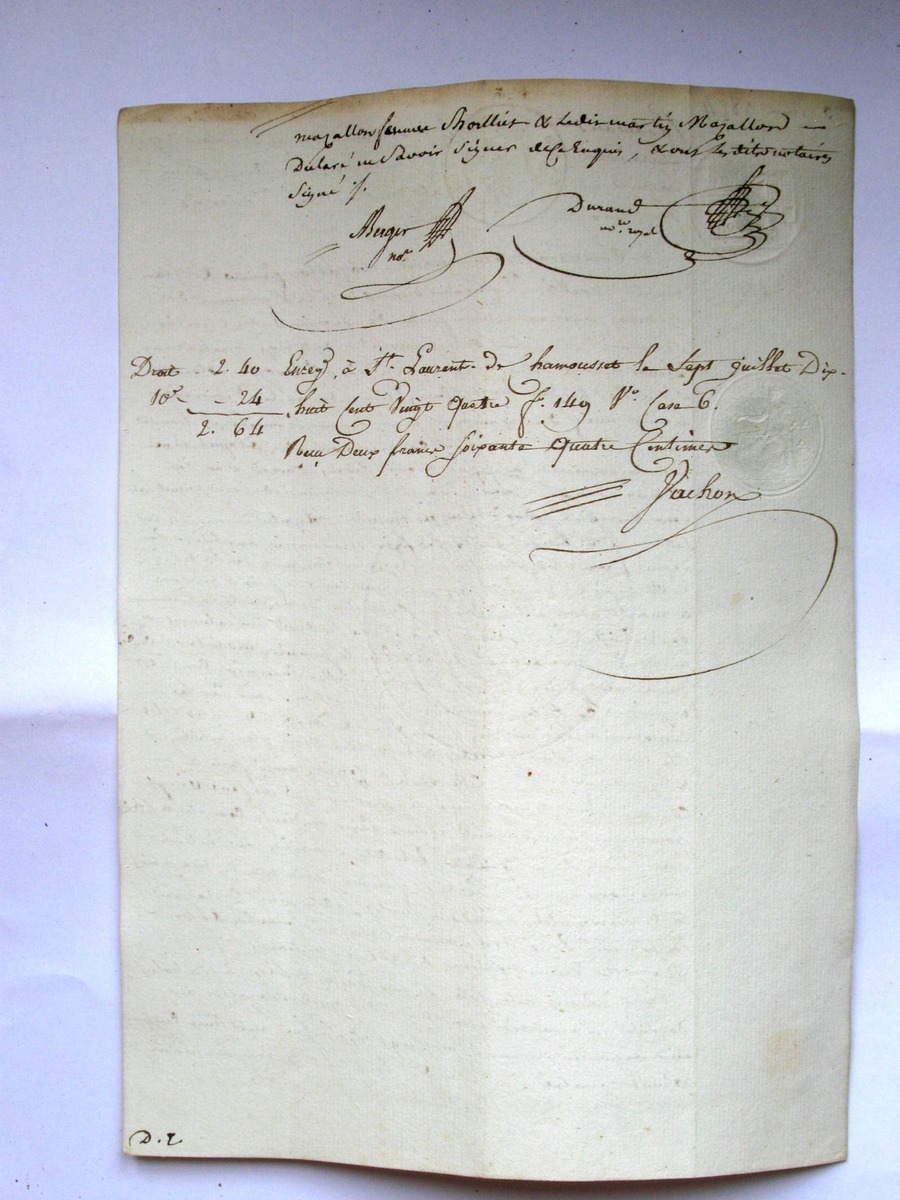 mazallon femme Thollier & Ledit martin Mazallon
Déclaré ne Savoir Signer de Ce Enquis, & ont Lesdits notaires
Signé ./.
Berger
nore
Durand
nore royal
Droit 2. 40 Enregé à St. Laurent de Chamousset le Sept juillet Dix-
10e - 24 huit Cent Vingt Quatre fo. 149 Vo. Case 6.
2. 64
Reçu Deux francs Soixante Quatre Centimes
Vachon
D. 2